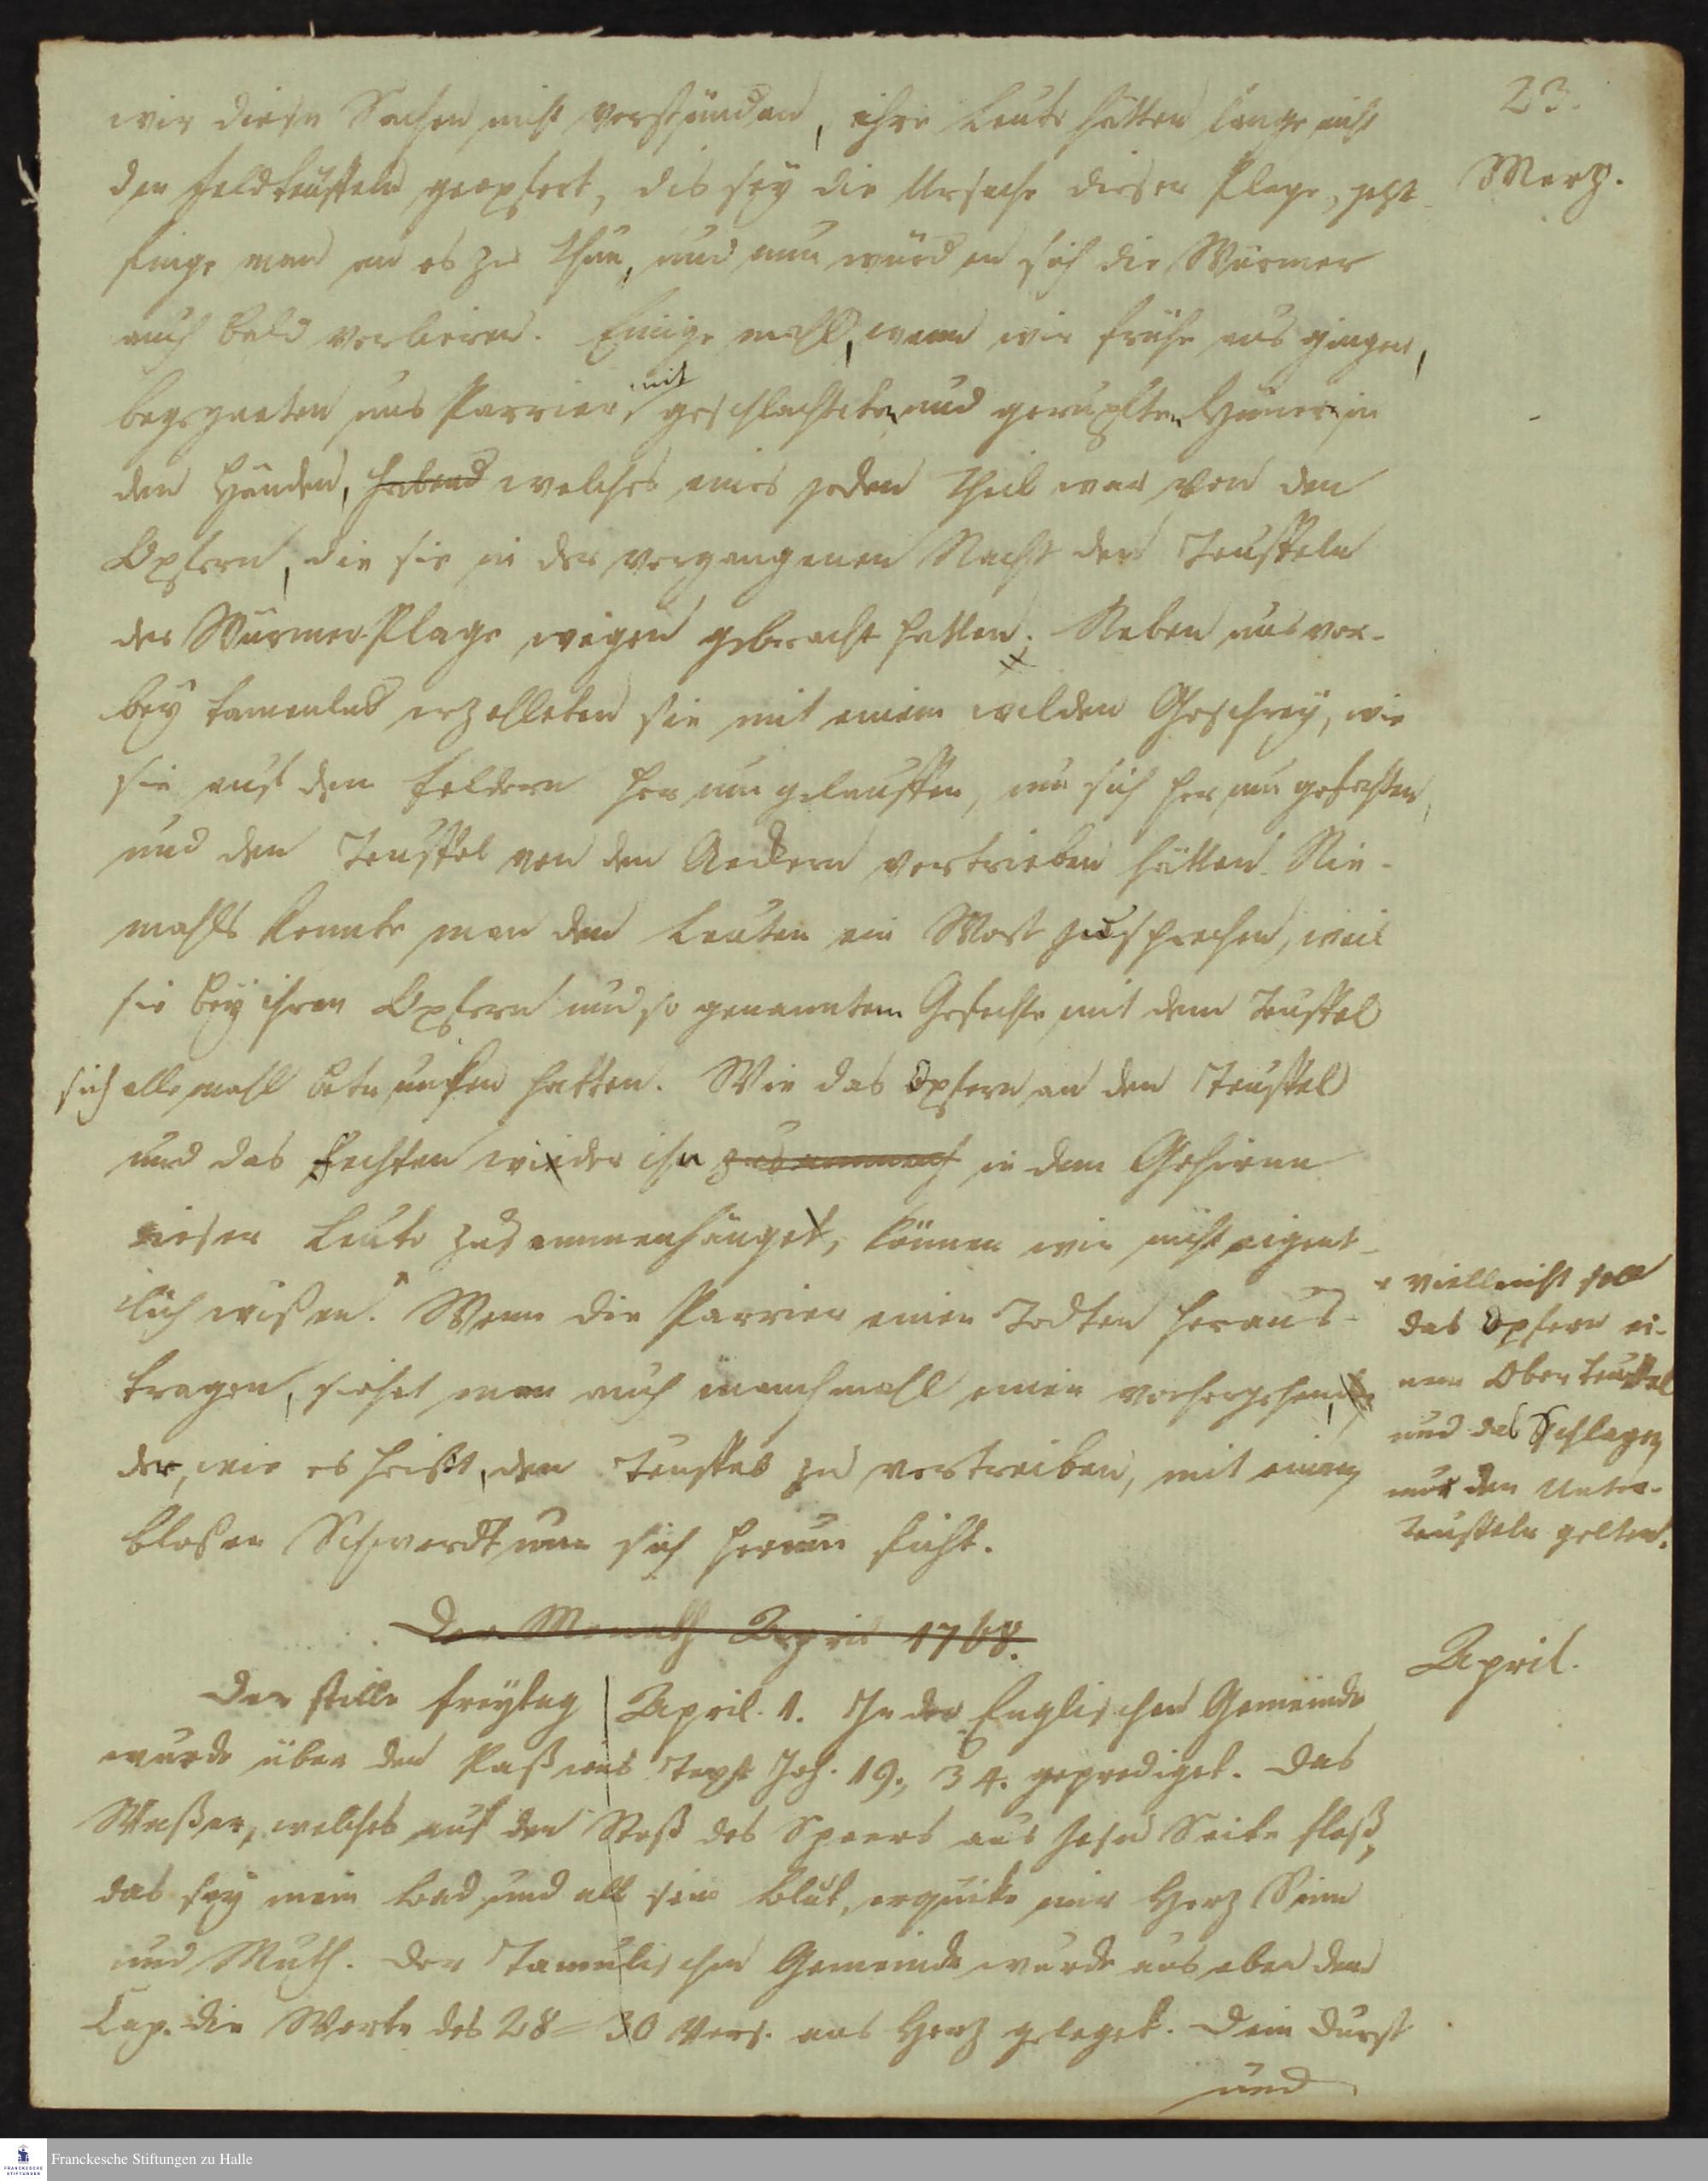 23.
Merz.
wir diese Sachen nicht verstünden, ihre Leute hätten lange nicht
den Feldteuffeln geopfert, dis sey die Ursache dieser Plage, jetzt
finge man an es zu thun, und nun würden sich die Würmer
auch bald verlieren. Einige mahl, wenn wir frühe aus gingen,
begegneten uns Parrier mit geschlachteten und gerupften Hüner in
den Händen, habend welches eines jeden Theil war von den
Opfern, die sie in der vergangenen Nacht den Teuffeln
der Würmer Plage wegen gebracht hatten. Neben uns vor-
bey kamen und erzelleten sie mit einem wilden Geschrey, wie
sie auf den Feldern herum gelauffen, um sich herum gefochten,
und den Teuffel von den Aeckern vertrieben hätten. Nie-
mahls konnte man den Leuten ein Wort zusprechen, weil
sie bey ihren Opfern und so genannten Gefechte mit dem Teuffel
sich alle mahl betrunken hatten. Wie das Opfern an den Teuffel
und das Fechten wieder ihn zusammen in dem Gehirne
dieser Leute zusammenhänget, können wir nicht eigent-
lich wißen. Wenn die Parrier einen Todten heraus-
tragen, siehet man auch manchmahl einen vorhergehen,
der, wie es heißt, den Teuffel zu vertreiben, mit einem
bloßen Schwerdt um sich herum ficht.
vielleicht soll
das Opfern ei-
nem Ober teuffel
und das Schlagen
nur den Unter-
teuffeln gelten.
Der Monath April 1768.
April.
Der stille Freytag April. 1. In der Englischen Gemeinde
wurde über den Paßions Text Joh. 19, 34. geprediget. Das
Waßer, welches auf den Stoß des Speers aus Jesu Seite floß,
das sey mein Bad und all sein Blut, erquicke mir Herz Sinn
und Muth. Der Tamulischen Gemeinde wurde aus eben dem
Cap. die Worte des 28 = 30 Vers. ans Herz geleget. Dein Durst
und
Franckesche Stiftungen zu Halle